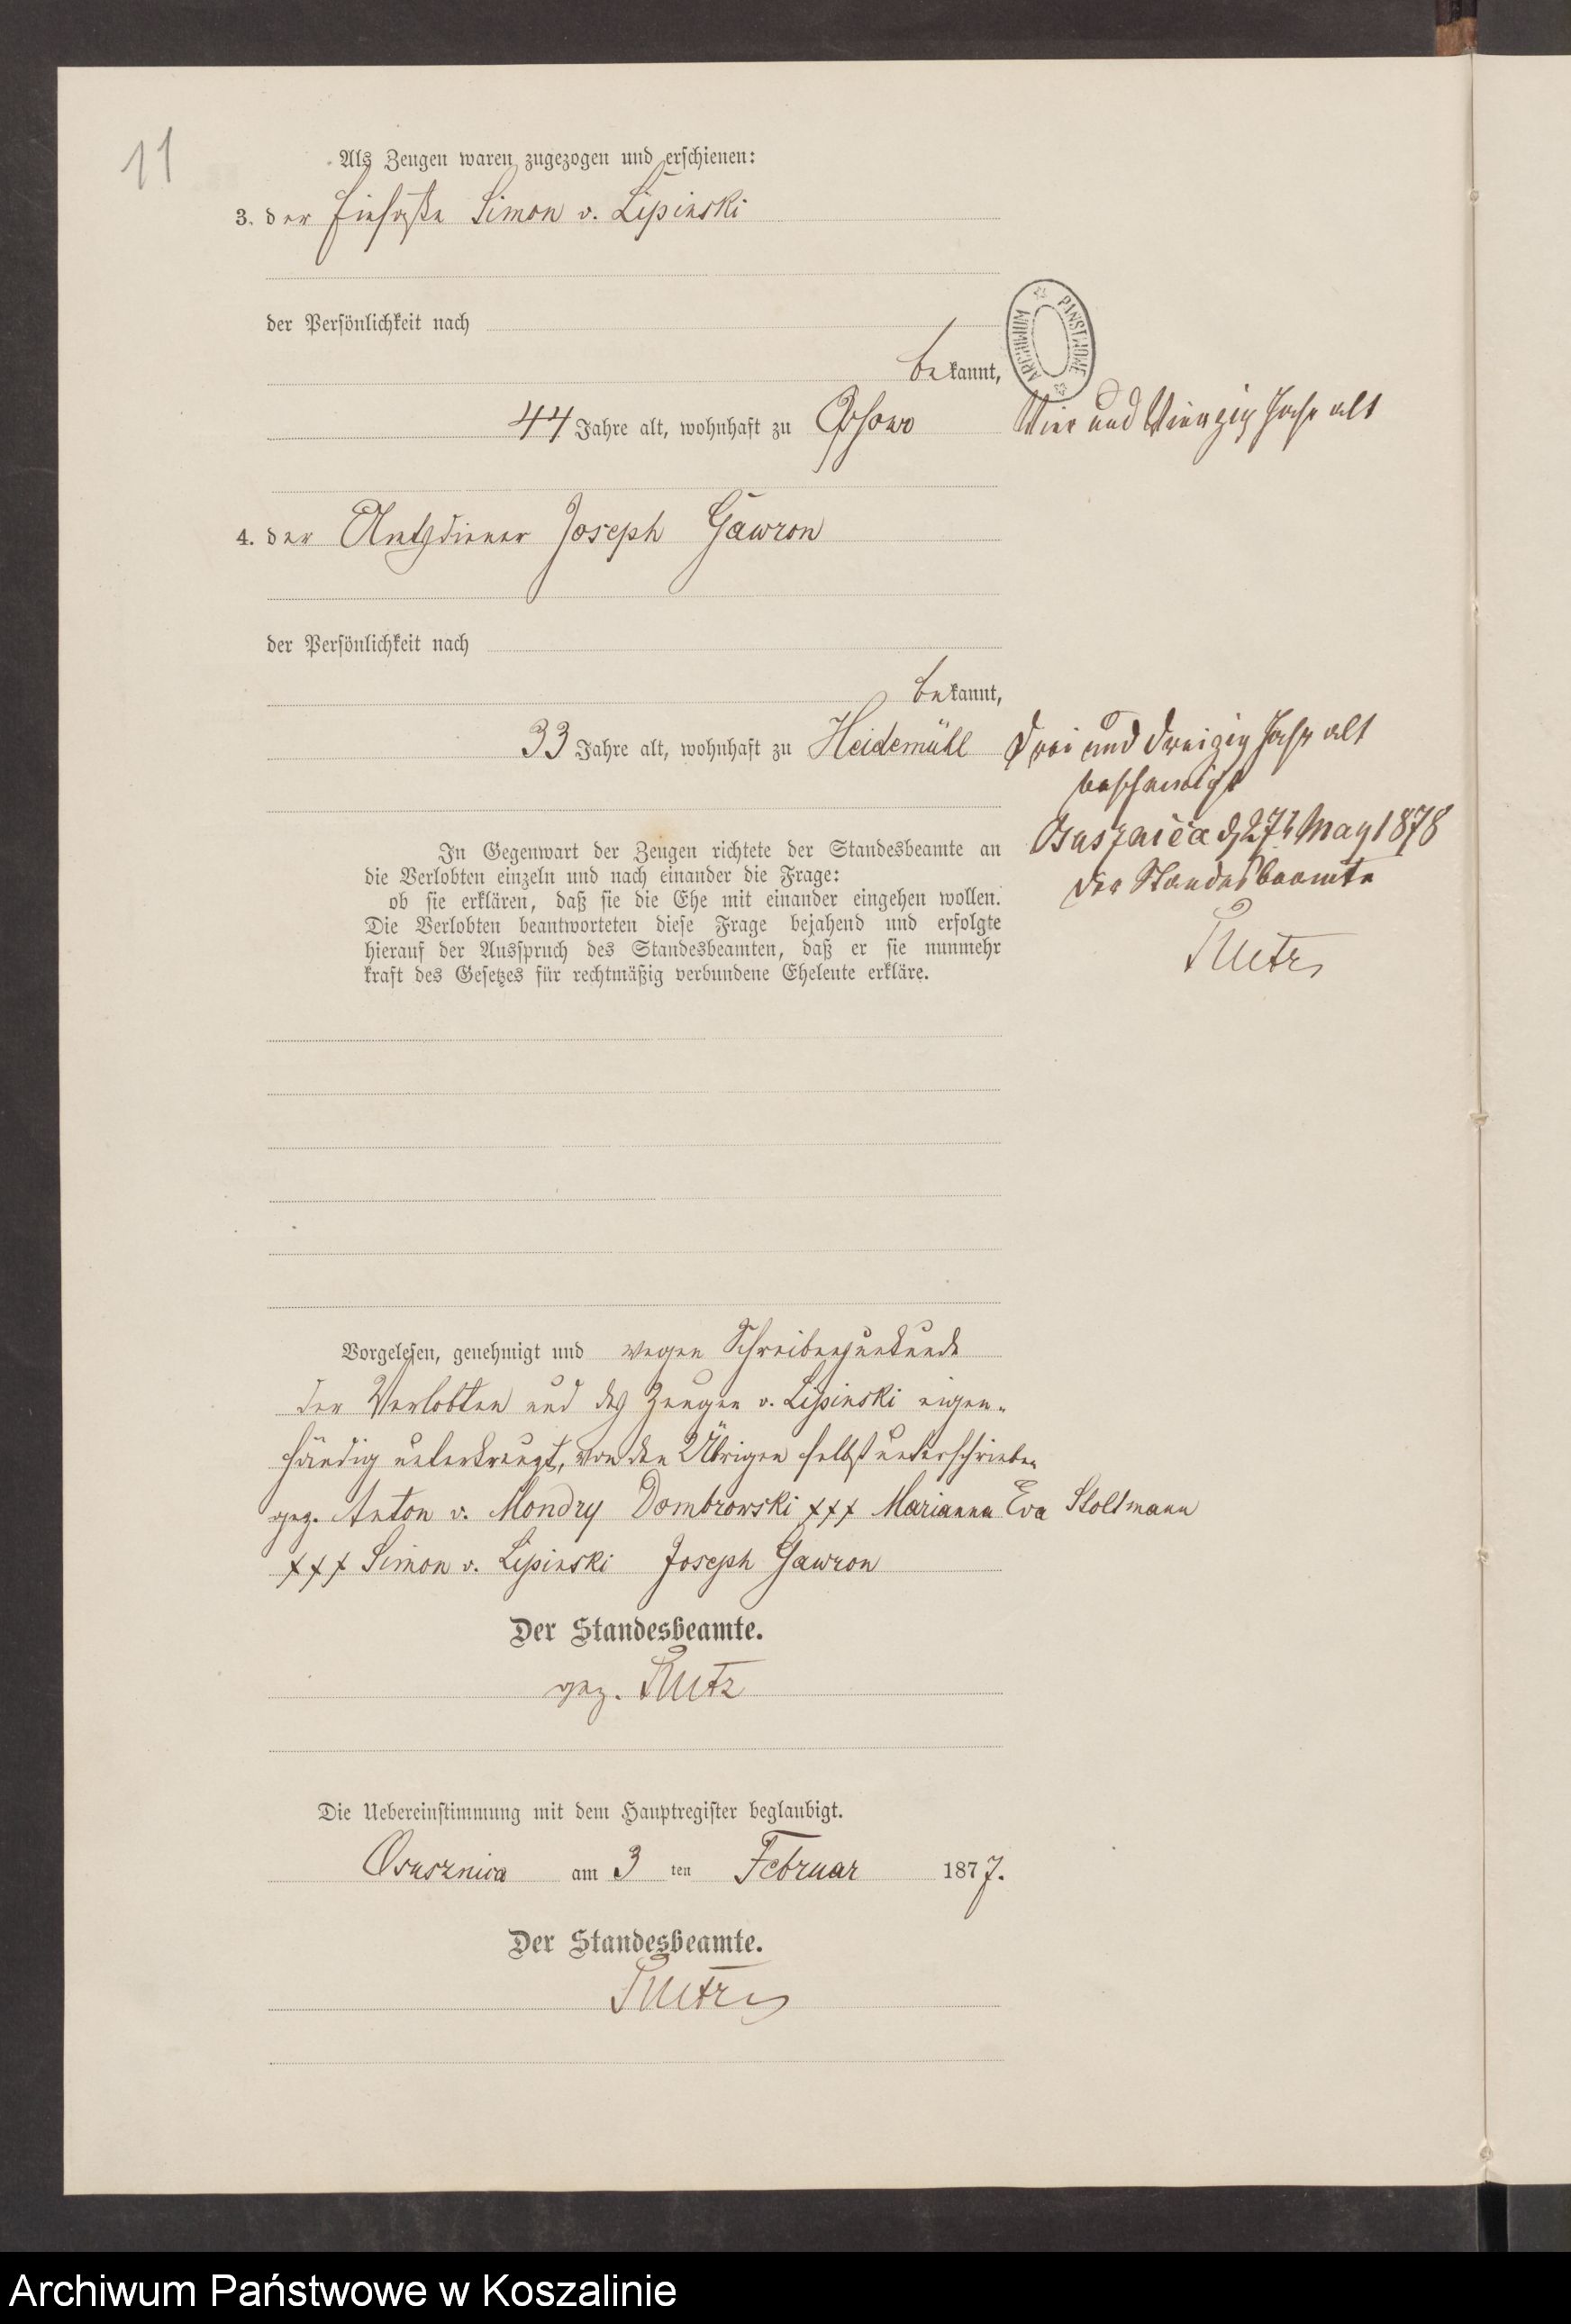 11
Als Zeugen waren zugezogen und erschienen:
3. der Einsaße Simon v. Lipinski
der Persönlichkeit nach
bekannt,
ARCHIWUM PAŃSTWOWE
44 Jahre alt, wohnhaft zu Ossowo
Vier und Vierzig Jahr alt
4. der Amtsdiener Joseph Gawron
der Persönlichkeit nach
bekannt,
33 Jahre alt, wohnhaft zu Heidemühl
Drei und Dreizig Jahr alt
bescheinigt
Osusznica d 27t May 1878
der Standesbeamte
Kutz
In Gegenwart der Zeugen richtete der Standesbeamte an
die Verlobten einzeln und nach einander die Frage:
ob sie erklären, daß sie die Ehe mit einander eingehen wollen.
Die Verlobten beantworteten diese Frage bejahend und erfolgte
hierauf der Ausspruch des Standesbeamten, daß er sie nunmehr
kraft des Gesetzes für rechtmäßig verbundene Eheleute erkläre.
Vorgelesen, genehmigt und wegen Schreibensunkunde
der Verlobten und des Zeugen v. Lipinski eigen-
händig unterkreuzt, von den Übrigen selbst unterschrieben
gez. Anton v. Mondry Dombrowski +++ Marianna Eva Stoltmann
+++ Simon v. Lipinski Joseph Gawron
Der Standesbeamte.
gez. Kutz
Die Uebereinstimmung mit dem Hauptregister beglaubigt.
Osusznica am 3 ten Februar 1877.
Der Standesbeamte.
Kutz
Archiwum Państwowe w Koszalinie